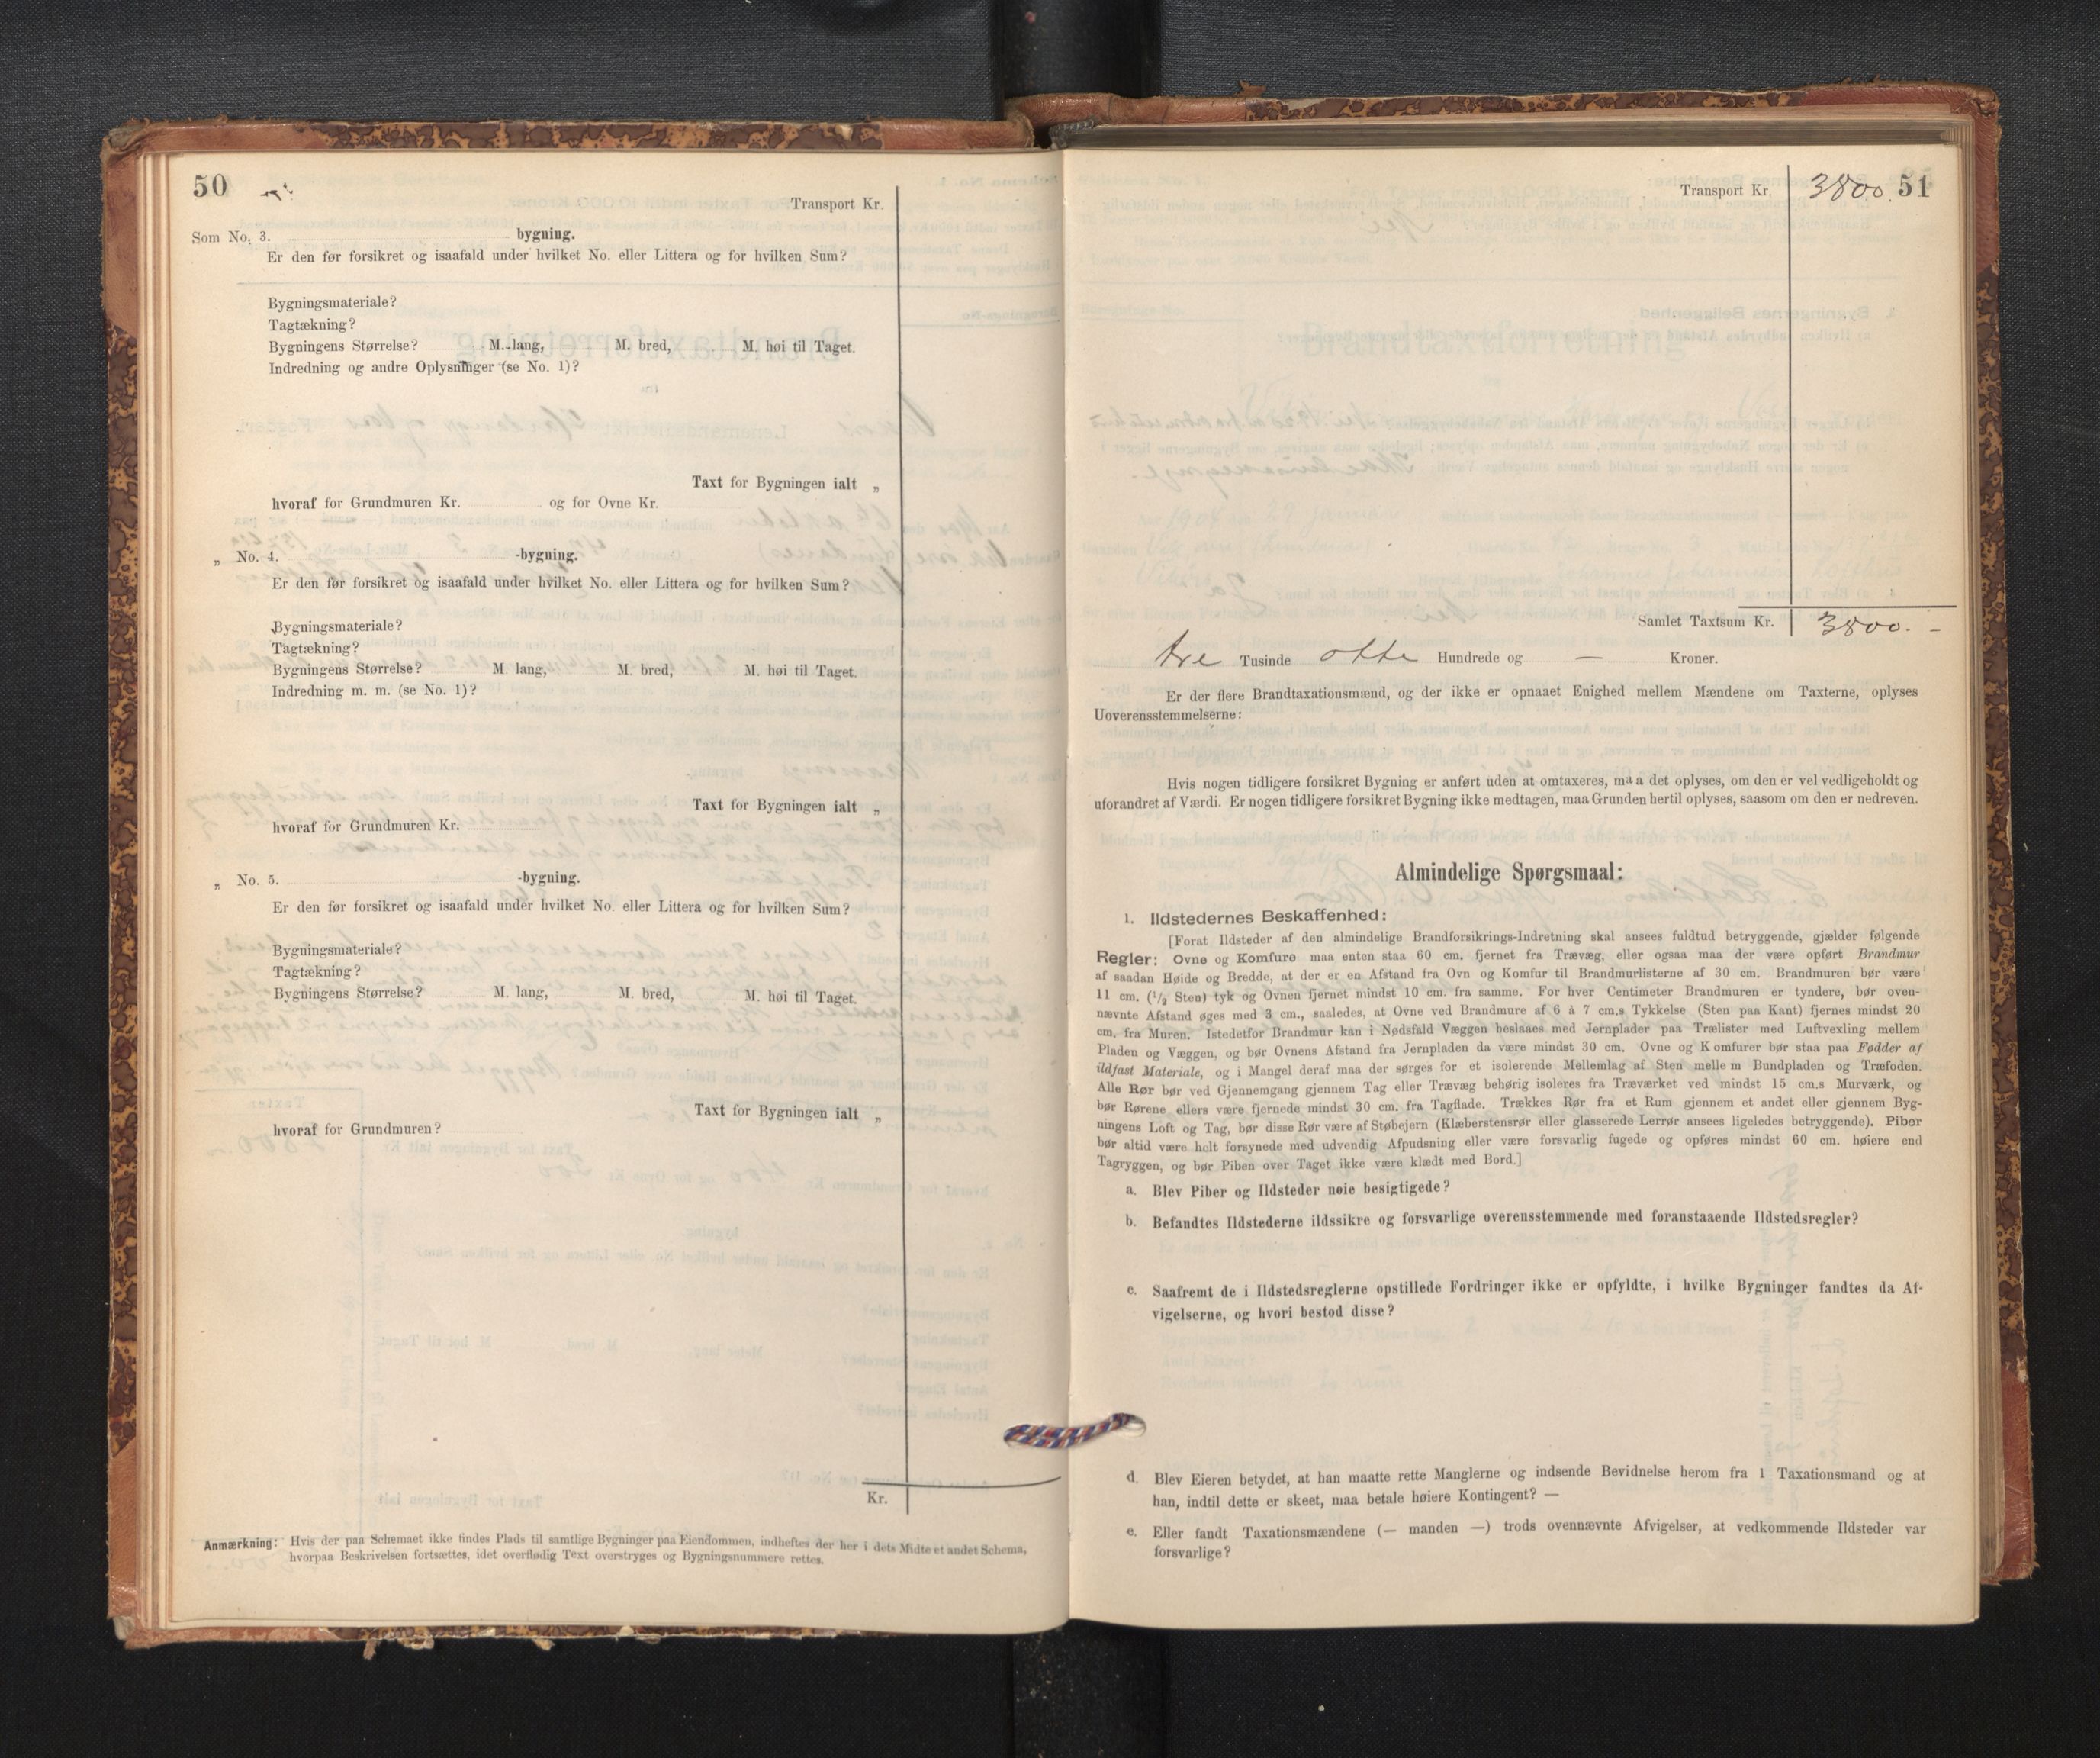 50
Transport Kr.
Som No. 3. bygning.
Er den før forsikret og isaafald under hvilket No. eller Littera og for hvilken Sum?
Bygningsmateriale?
Tagtækning?
Bygningens Størrelse? M. lang, M. bred, M. høi til Taget.
Indredning og andre Oplysninger (se No. 1)?
Taxt for Bygningen ialt „
hvoraf for Grundmuren Kr. og for Ovne Kr.
„ No. 4. -bygning.
Er den før forsikret og isaafald under hvilket No. eller Littera og for hvilken Sum?
Bygningsmateriale?
Tagtækning?
Bygningens Størrelse? M. lang, M. bred, M. høi til Taget.
Indredning m. m. (se No. 1)?
Taxt for Bygningen ialt „
hvoraf for Grundmuren Kr.
„ No. 5. -bygning.
Er den før forsikret og isaafald under hvilket No. eller Littera og for hvilken Sum?
Bygningsmateriale?
Tagtækning?
Bygningens Størrelse? M. lang, M. bred, M. høi til Taget.
Taxt for Bygningen ialt „
hvoraf for Grundmuren?
Kr.
Anmærkning: Hvis der paa Schemaet ikke findes Plads til samtlige Bygninger paa Eiendommen, indheftes der her i dets Midte et andet Schema,
hvorpaa Beskrivelsen fortsættes, idet overflødig Text overstryges og Bygningsnummere rettes.
Transport Kr. 3800. 51
Samlet Taxtsum Kr. 3800. -
tre Tusinde otte Hundrede og — Kroner.
Er der flere Brandtaxationsmænd, og der ikke er opnaaet Enighed mellem Mændene om Taxterne, oplyses
Uoverensstemmelserne:
Hvis nogen tidligere forsikret Bygning er anført uden at omtaxeres, maa det oplyses, om den er vel vedligeholdt og
uforandret af Værdi. Er nogen tidligere forsikret Bygning ikke medtagen, maa Grunden hertil oplyses, saasom om den er nedreven.
Almindelige Spørgsmaal:
1. Ildstedernes Beskaffenhed:
[Forat Ildsteder af den almindelige Brandforsikrings-Indretning skal ansees fuldtud betryggende, gjælder følgende
Regler: Ovne og Komfure maa enten staa 60 cm. fjernet fra Trævæg, eller ogsaa maa der være opført Brandmur
af saadan Høide og Bredde, at der er en Afstand fra Ovn og Komfur til Brandmurlisterne af 30 cm. Brandmuren bør være
11 cm. (1/2 Sten) tyk og Ovnen fjernet mindst 10 cm. fra samme. For hver Centimeter Brandmuren er tyndere, bør oven-
nævnte Afstand øges med 3 cm., saaledes, at Ovne ved Brandmure af 6 à 7 cm.s Tykkelse (Sten paa Kant) fjernes mindst 20
cm. fra Muren. Istedetfor Brandmur kan i Nødsfald Væggen beslaaes med Jernplader paa Trælister med Luftvexling mellem
Pladen og Væggen, og bør Ovnens Afstand fra Jernpladen da være mindst 30 cm. Ovne og Komfurer bør staa paa Fødder af
ildfast Materiale, og i Mangel deraf maa der sørges for et isolerende Mellemlag af Sten mellem Bundpladen og Træfoden.
Alle Rør bør ved Gjennemgang gjennem Tag eller Trævæg behørig isoleres fra Træværket ved mindst 15 cm.s Murværk, og
bør Rørene ellers være fjernede mindst 30 cm. fra Tagflade. Trækkes Rør fra et Rum gjennem et andet eller gjennem Byg-
ningens Loft og Tag, bør disse Rør være af Støbejern (Klæberstensrør eller glasserede Lerrør ansees ligeledes betryggende). Piber
bør altid være helt forsynede med udvendig Afpudsning eller være forsvarlig fugede og opføres mindst 60 cm. høiere end
Tagryggen, og bør Piben over Taget ikke være klædt med Bord.]
a. Blev Piber og Ildsteder nøie besigtigede?
b. Befandtes Ildstederne ildssikre og forsvarlige overensstemmende med foranstaaende Ildstedsregler?
c. Saafremt de i Ildstedsreglerne opstillede Fordringer ikke er opfyldte, i hvilke Bygninger fandtes da Af-
vigelserne, og hvori bestod disse?
d. Blev Eieren betydet, at han maatte rette Manglerne og indsende Bevidnelse herom fra 1 Taxationsmand og at
han, indtil dette er skeet, maa betale høiere Kontingent? —
e. Eller fandt Taxationsmændene (— manden —) trods ovennævnte Afvigelser, at vedkommende Ildsteder var
forsvarlige?